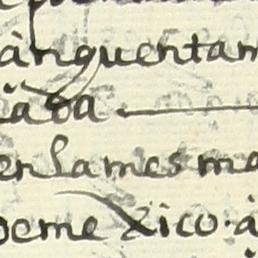 anquentam
iada
en la mesma
deme xico. á